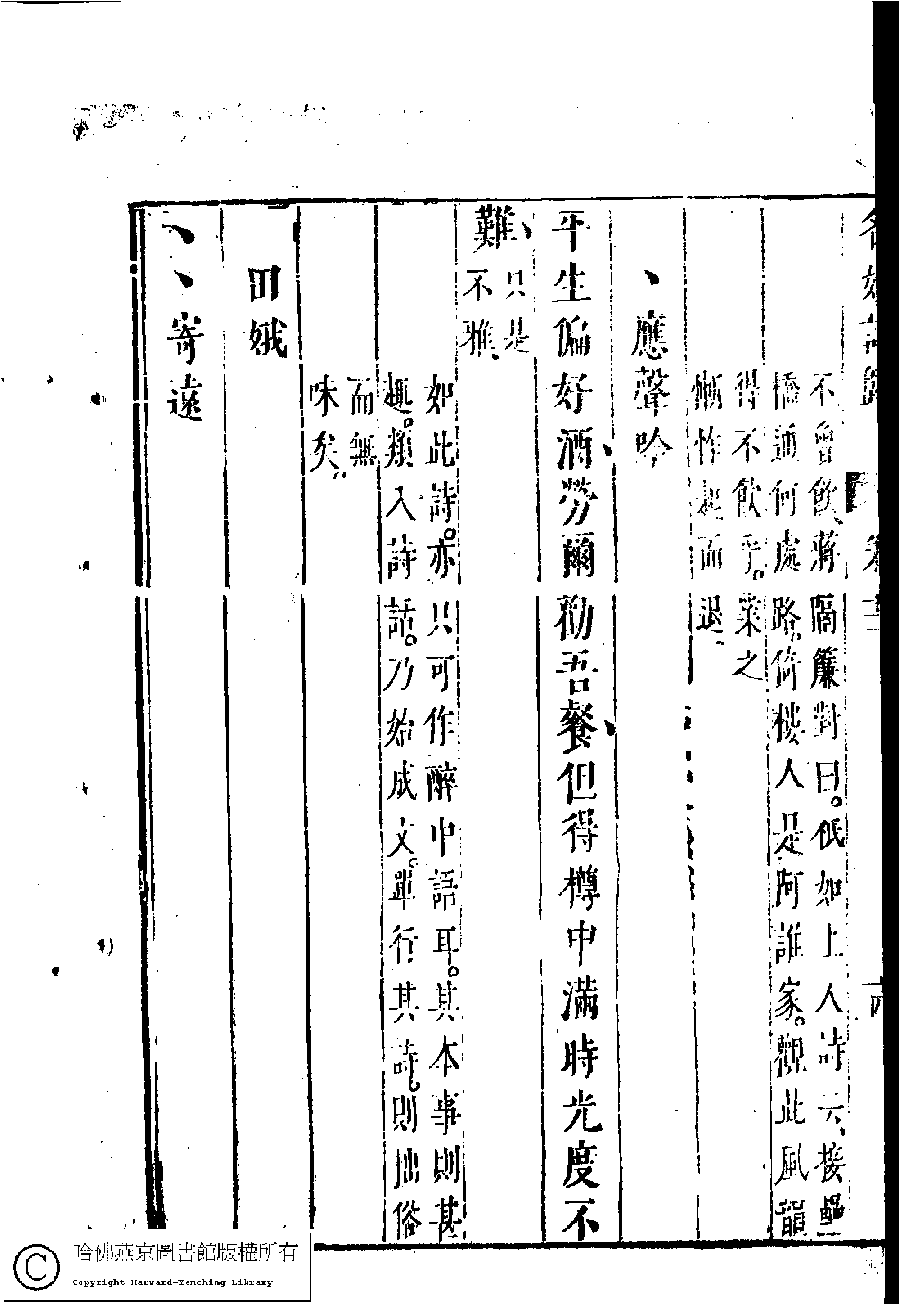 不曾飲蔣隔簾對曰。秪如上人詩云、接壘
橋通何處路、倚樓人是阿誰家。觀此風韻
得不飲乎。業之
慚怍起而退。
應聲吟
平生偏好酒、勞爾勸吾餐、但得樽中滿時光度不
難、只是
不雅、
如此詩。亦只可作醉中語耳。其本事則甚
趣。類入詩話。乃始成文。單行其詩。則拙俗
而無
味矣。
田娥
寄遠
哈佛燕京圖書館版權所有
Copyright Harvard-Yenching Library